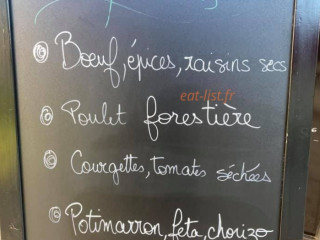 Bœuf, épices, raisins secs
eat-list.fr
Poulet forestière
Courgettes, tomates séchées
Potimarron, feta, chorizo